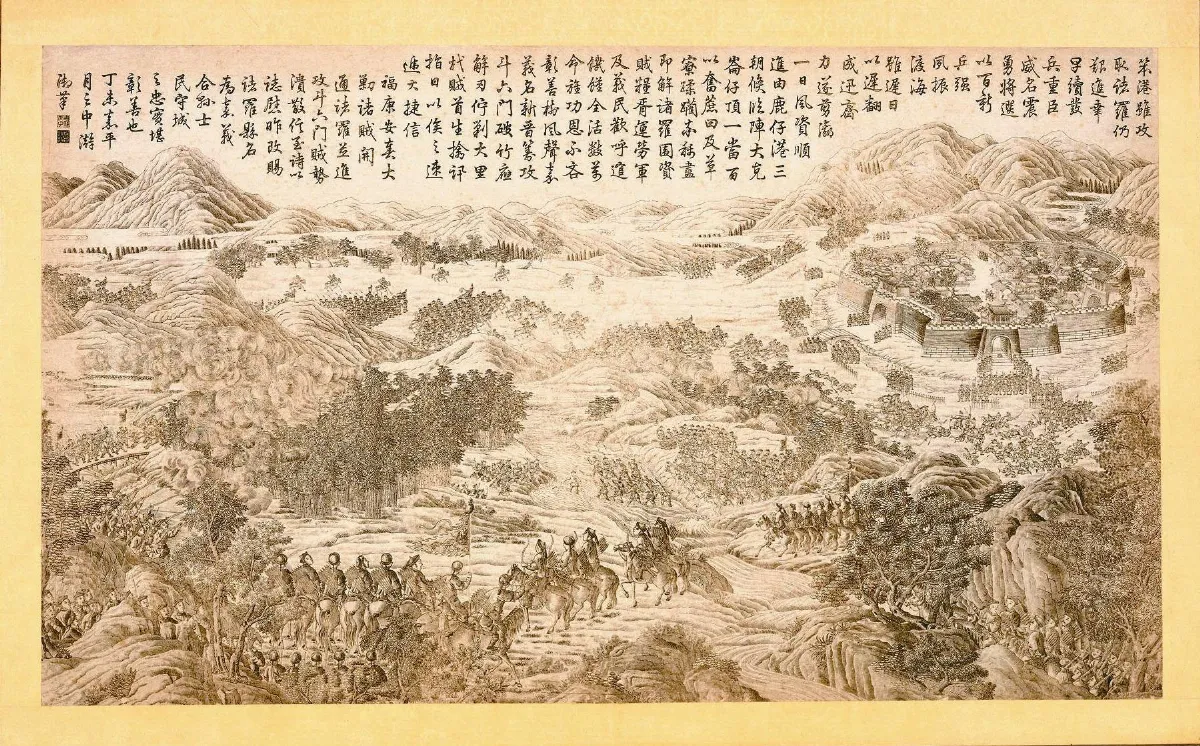 笨港雖攻
取諸羅仍
艱進幸
早續發
兵重臣
威名震
勇將選
以百新
兵強
夙振
渡海
雖遲日
以遲翻
成迅齊
力遂剪
一日風資順
進由鹿仔港三
朝候臨陣大克
崙仔頂一當百
以奮蔗田及草
寮蹂躪亦務盡
即解諸羅圍資
賊糧胥運勞軍
及義民歡呼遑
饑饉全活數萬
命旌功恩不吝
彰善樹風聲嘉
義名新晉籌攻
斗六門破竹應
解刃佇剿大里
杙賊首生擒訊
指日以俟之速
遞大捷信
福康安奏大
勦諸賊開
通諸羅並進
攻斗六門賊勢
潰散信至詩以
誌慰昨改賜
諸羅縣名
為嘉義
士
民守城
之忠實堪
彰善也
丁未嘉平
月之中澣
御筆